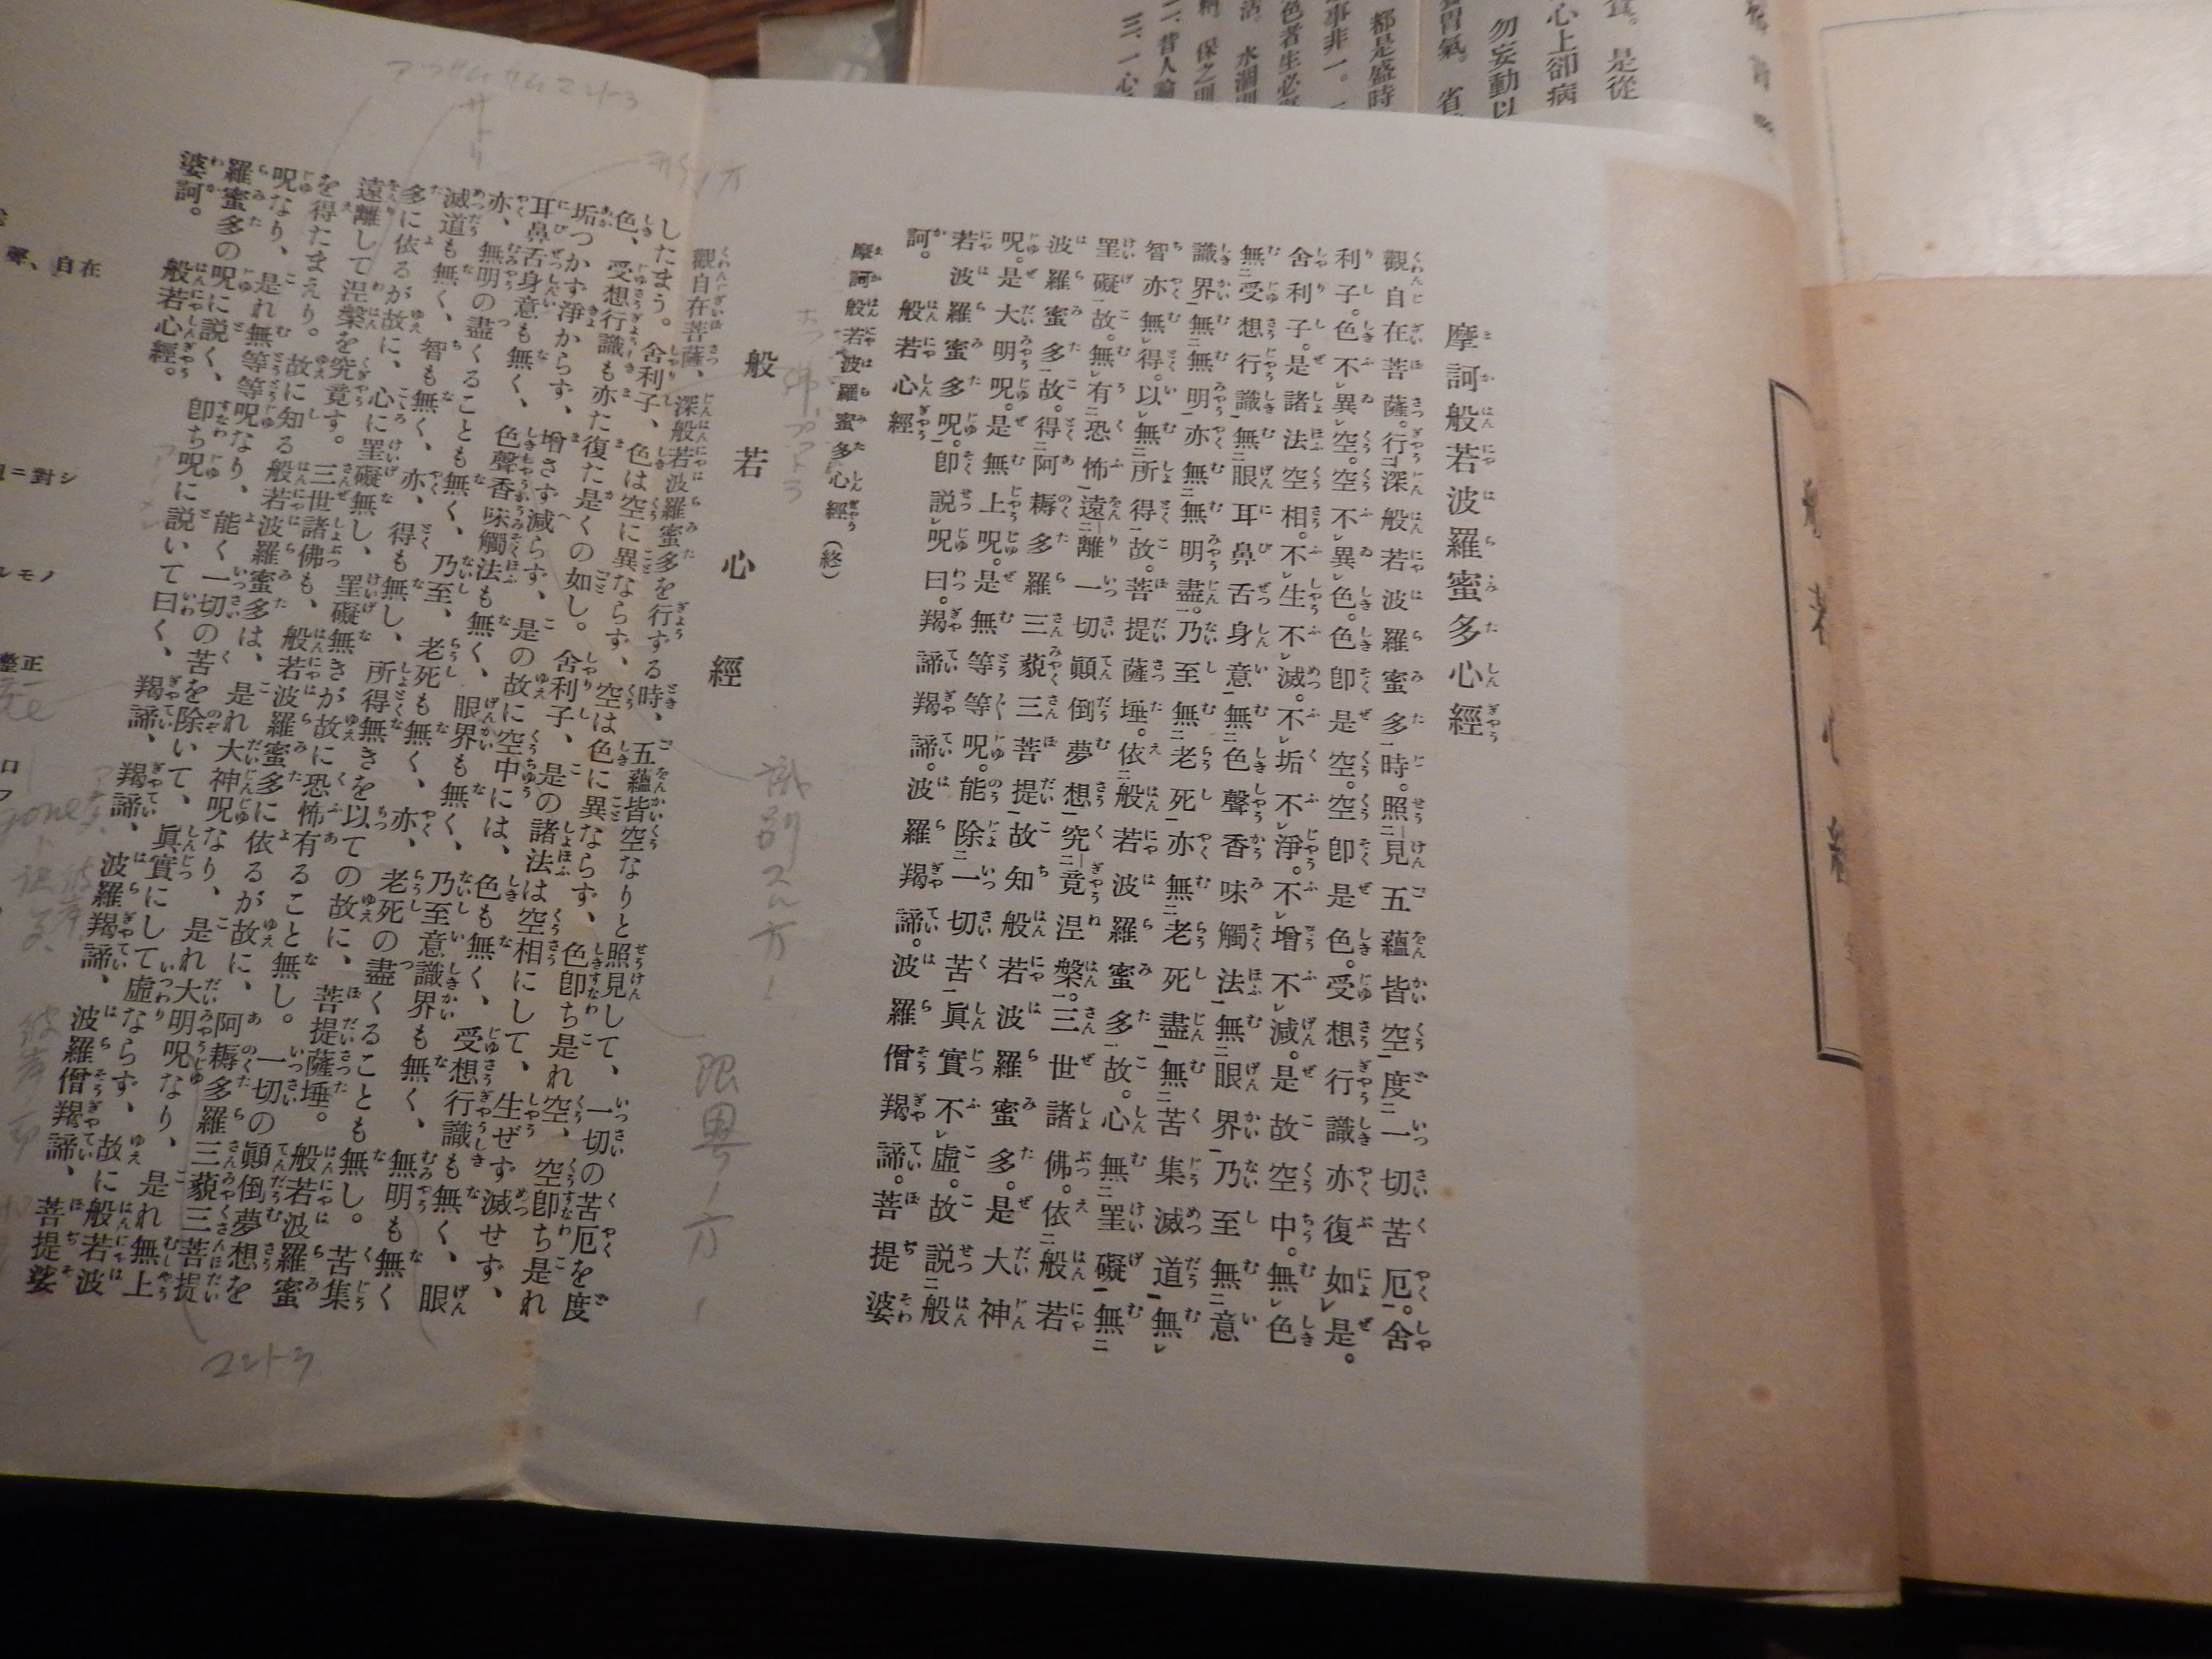 勿妄動以
心上卻病
是從
都是盛時
摩訶般若波羅蜜多心經
觀自在菩薩。行深般若波羅蜜多時。照見五蘊皆空度一切苦厄。舍
利子。色不異空。空不異色。色卽是空。空卽是色。受想行識亦復如是。
舍利子。是諸法空相。不生不滅。不垢不淨。不增不減。是故空中。無色
無受想行識無眼耳鼻舌身意無色聲香味觸法無眼界乃至無意
識界無無明亦無無明盡。乃至無老死亦無老死盡無苦集滅道無
智亦無得。以無所得故。菩提薩埵。依般若波羅蜜多故。心無罣礙無
罣礙故。無有恐怖遠離一切顚倒夢想究竟涅槃。三世諸佛。依般若
波羅蜜多故。得阿耨多羅三藐三菩提故知般若波羅蜜多。是大神
呪。是大明呪。是無上呪。是無等等呪。能除一切苦眞實不虛。故説般
若波羅蜜多呪。卽説呪曰。羯諦羯諦。波羅羯諦。波羅僧羯諦。菩提婆
訶。般若心經
摩訶般若波羅蜜多心經（終）
般若心經
觀自在菩薩、深般若波羅蜜多を行ずる時、五蘊皆空なりと照見して、一切の苦厄を度
したまう。舍利子、色は空に異ならず、空は色に異ならず、色卽ち是れ空、空卽ち是れ
色、受想行識も亦た復た是くの如し。舍利子、是の諸法は空相にして、生ぜず滅せず、
垢つかず淨からず、增さず減らず、是の故に空中には、色も無く、受想行識も無く、眼
耳鼻舌身意も無く、色聲香味觸法も無く、眼界も無く、乃至意識界も無く、無明も無く
亦、無明の盡くることも無く、乃至、老死も無く、亦、老死の盡くることも無し。苦集
滅道も無く、智も無く、亦、得も無し、所得無きを以ての故に、菩提薩埵。般若波羅蜜
多に依るが故に、心に罣礙無し、罣礙無きが故に恐怖有ること無し。一切の顚倒夢想を
遠離して涅槃を究竟す。三世諸佛も、般若波羅蜜多に依るが故に、阿耨多羅三藐三菩提
を得たまえり。故に知る般若波羅蜜多は、是れ大神呪なり、是れ大明呪なり、是れ無上
呪なり、是れ無等等呪なり、能く一切の苦を除いて、眞實にして虛ならず、故に般若波
羅蜜多の呪に説く、卽ち呪に説いて曰く、羯諦、羯諦、波羅羯諦、波羅僧羯諦、菩提娑
婆訶。般若心經。
サトリ
コントラ
自在
ニ對シ
レモノ
整正
gone